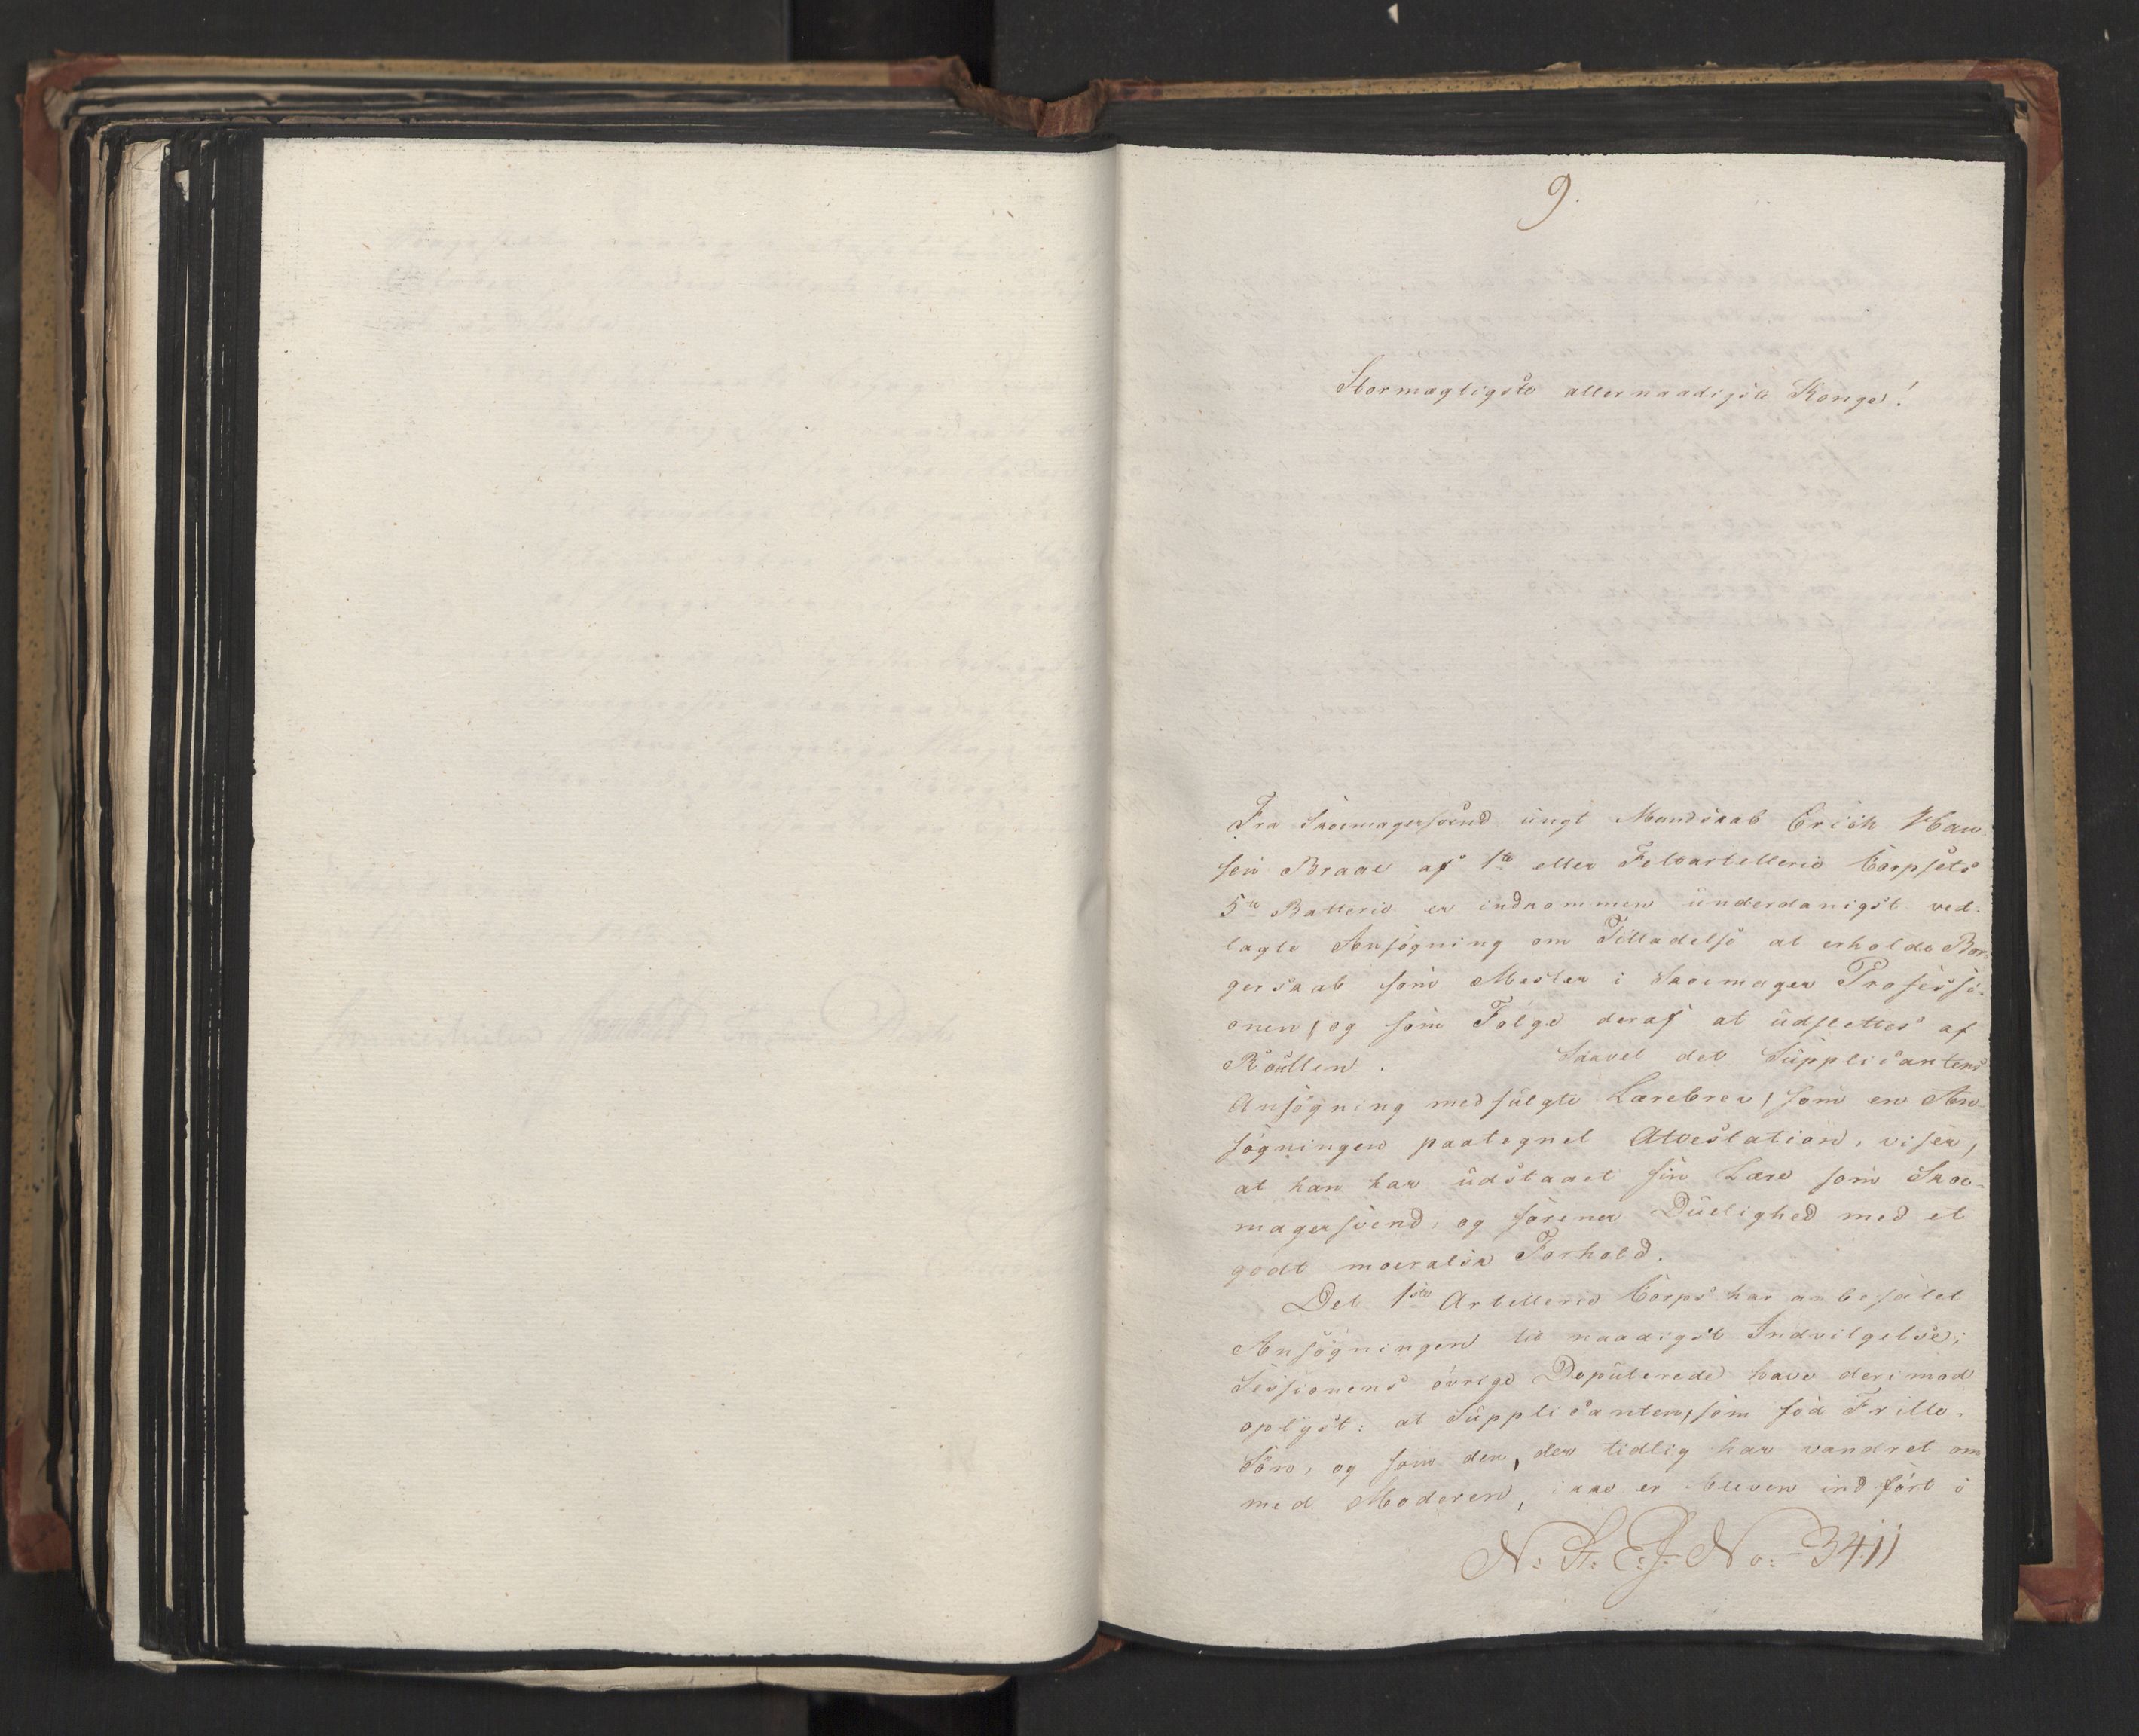 9.
Stormægtigste allernaadigste Konge!
Fra Skoemagersvend ungt Mandskab Erich Han-
sen Braae af 1te eller Feltartellerie Corpsets
5te Batterie er indkommen underdanigst ved-
lagte Ansøgning om Tilladelse at erholde Bor-
gerskab som Mester i Skoemager Professi-
onen, og som Følge deraf at udslettes af
Roullen. Saavel det Supplicantens
Ansøgning medfulgte Lærebrev, som en An-
søgningen paategnet Attestation, viser,
at han har udstaaet sin Lære som Skoe-
magersvend, og forener Duelighed med et
godt moralsk Forhold.
Det 1ste Artellerie Corps har anbefalet
Ansøgningen til naadigst Indvilgelse;
Sessionens øvrige Deputerede have derimod
oplyst: at Supplicanten, som fød Frille-
Søn, og som den, der tidlig har vandret om
med Moderen, ikke er bleven indført i
N: St: E: J: No: 3411